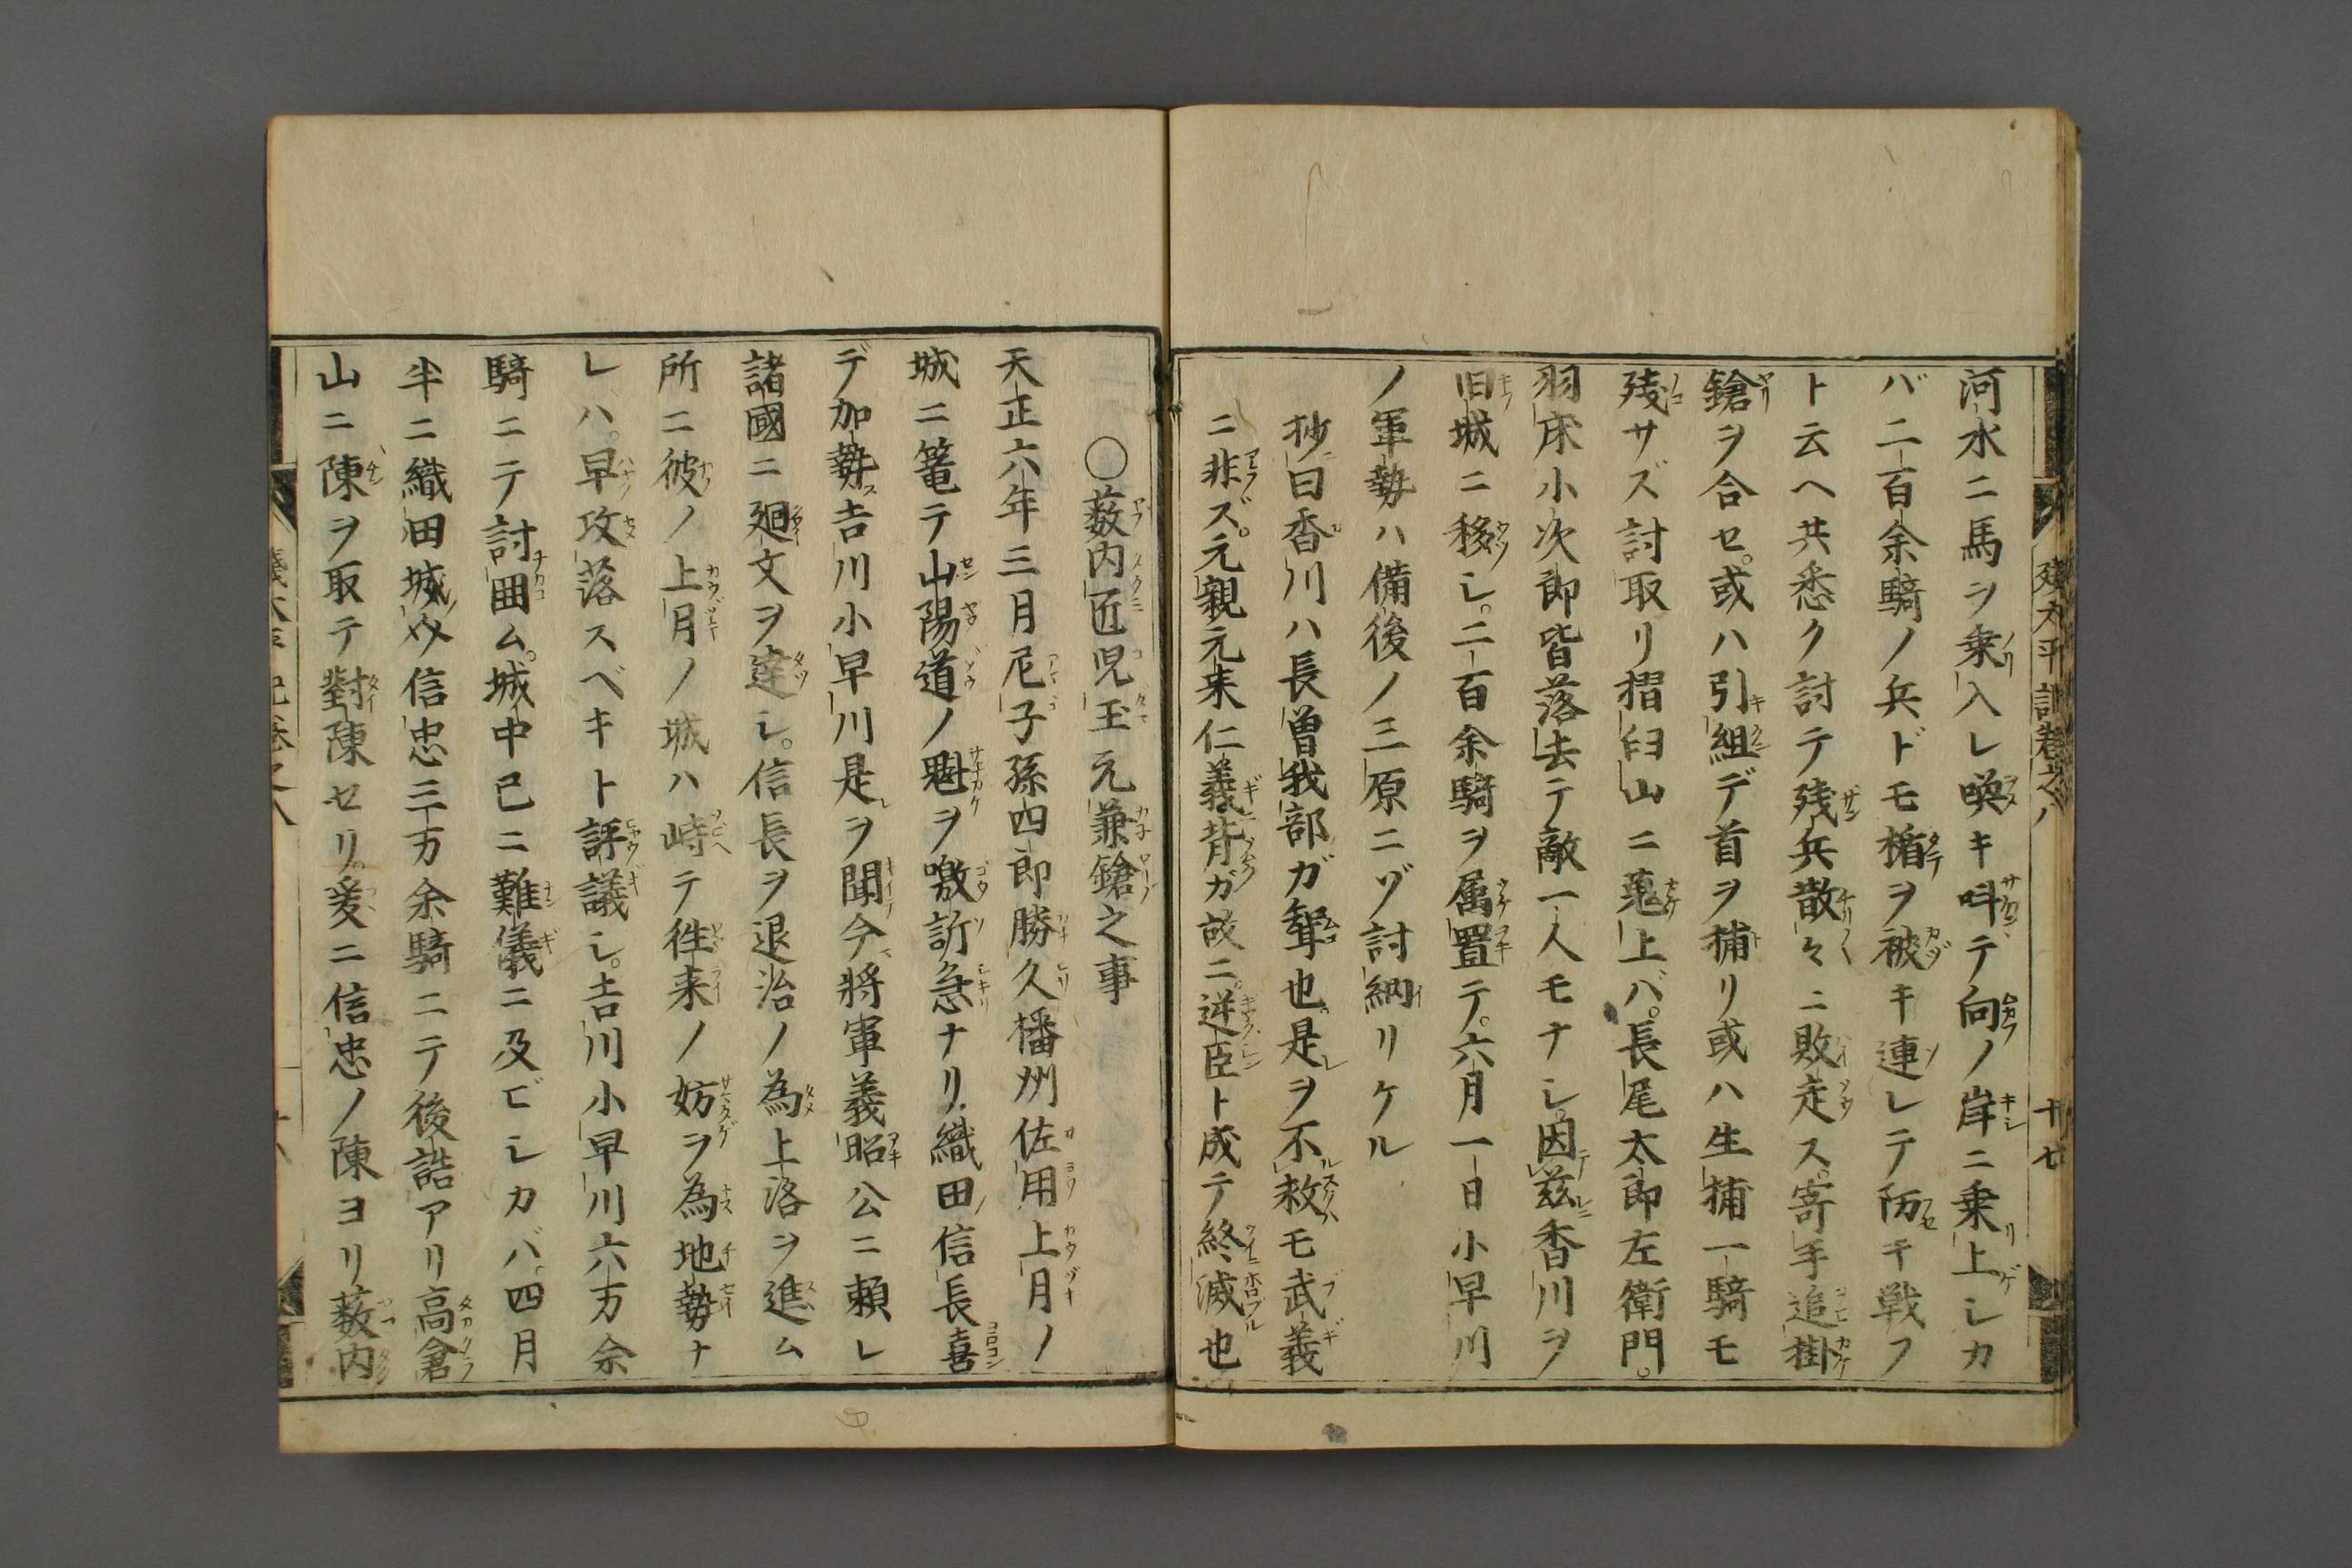 残太平記巻之八　十七
河水ニ馬ヲ乗入レ喚キ叫テ向ノ岸ニ乗上レカ
バ二百余騎ノ兵ドモ楯ヲ被キ連レテ防キ戦フ
ト云ヘ共悉ク討テ残兵散々ニ敗走ス。寄手追掛
鎗ヲ合セ。或ハ引組デ首ヲ捕リ或ハ生捕一騎モ
残サズ討取リ摺臼山ニ蒐上バ。長尾太郎左衛門。
羽床小次郎皆落去テ敵一人モナシ。因茲香川ヲ
旧城ニ移シ。二百余騎ヲ属置テ。六月一日小早川
ノ軍勢ハ備後ノ三原ニゾ討納リケル
抄曰香川ハ長曽我部ガ聟也。是ヲ不救モ武義
ニ非ズ。元親元来仁義背ガ故ニ。逆臣ト成テ終滅也
○薮内匠児玉元兼鎗之事
天正六年三月尼子孫四郎勝久播州佐用上月ノ
城ニ篭テ山陽道ノ魁ヲ噭訴急ナリ。織田信長喜
デ加勢ス吉川小早川是ヲ聞今將軍義昭公ニ頼レ
諸國ニ廻文ヲ達シ。信長ヲ退治ノ為上洛ヲ進ム
所ニ彼ノ上月ノ城ハ峙テ徃来ノ妨ヲ為地勢ナ
レハ。早攻落スベキト評議シ。吉川小早川六万余
騎ニテ討囲ム。城中已ニ難儀ニ及ビシカバ。四月
半ニ織田城ノ信忠三万余騎ニテ後詰アリ高倉
山ニ陳ヲ取テ對陳セリ爰ニ信忠ノ陳ヨリ薮内